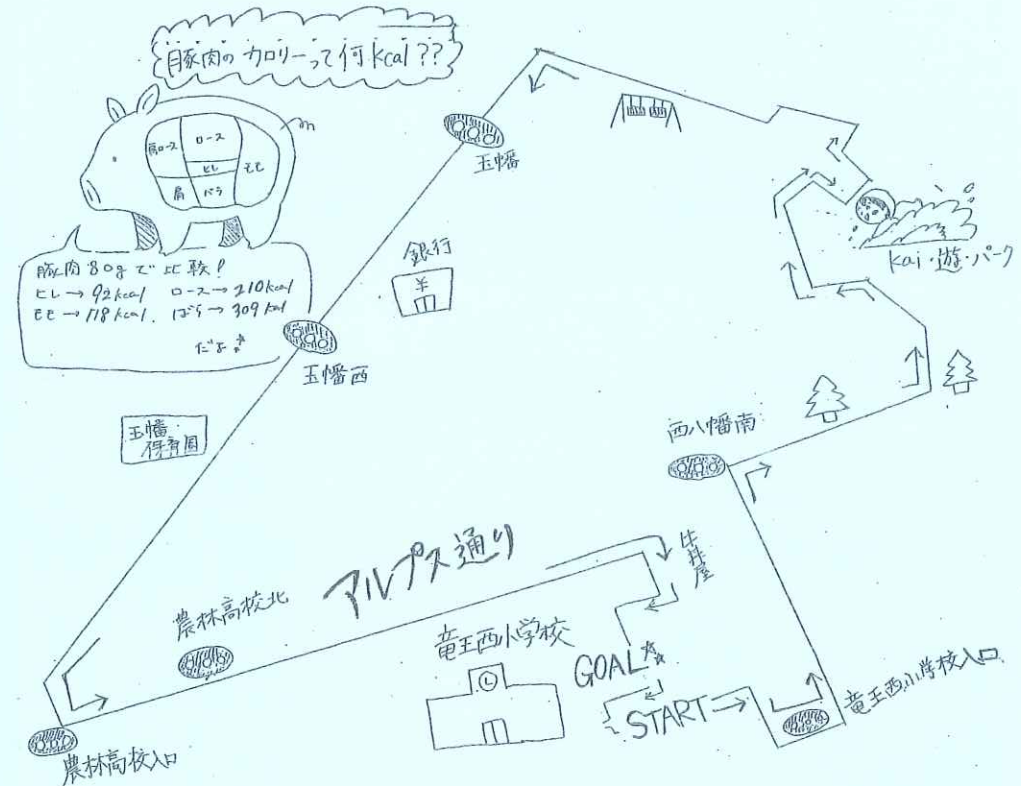 豚肉のカロリーって何kcal??
肩ロース
ロース
ヒレ
モモ
肩
バラ
豚肉80gで比較!
ヒレ→92kcal ロース→210kcal
モモ→118kcal. ばら→309kcal
だよ
玉幡
銀行
¥
kai・遊・パーク
玉幡西
玉幡
保育園
西八幡南
アルプス通り
牛丼屋
農林高校北
竜王西小学校
GOAL
START→
竜王西小学校入口
農林高校入口